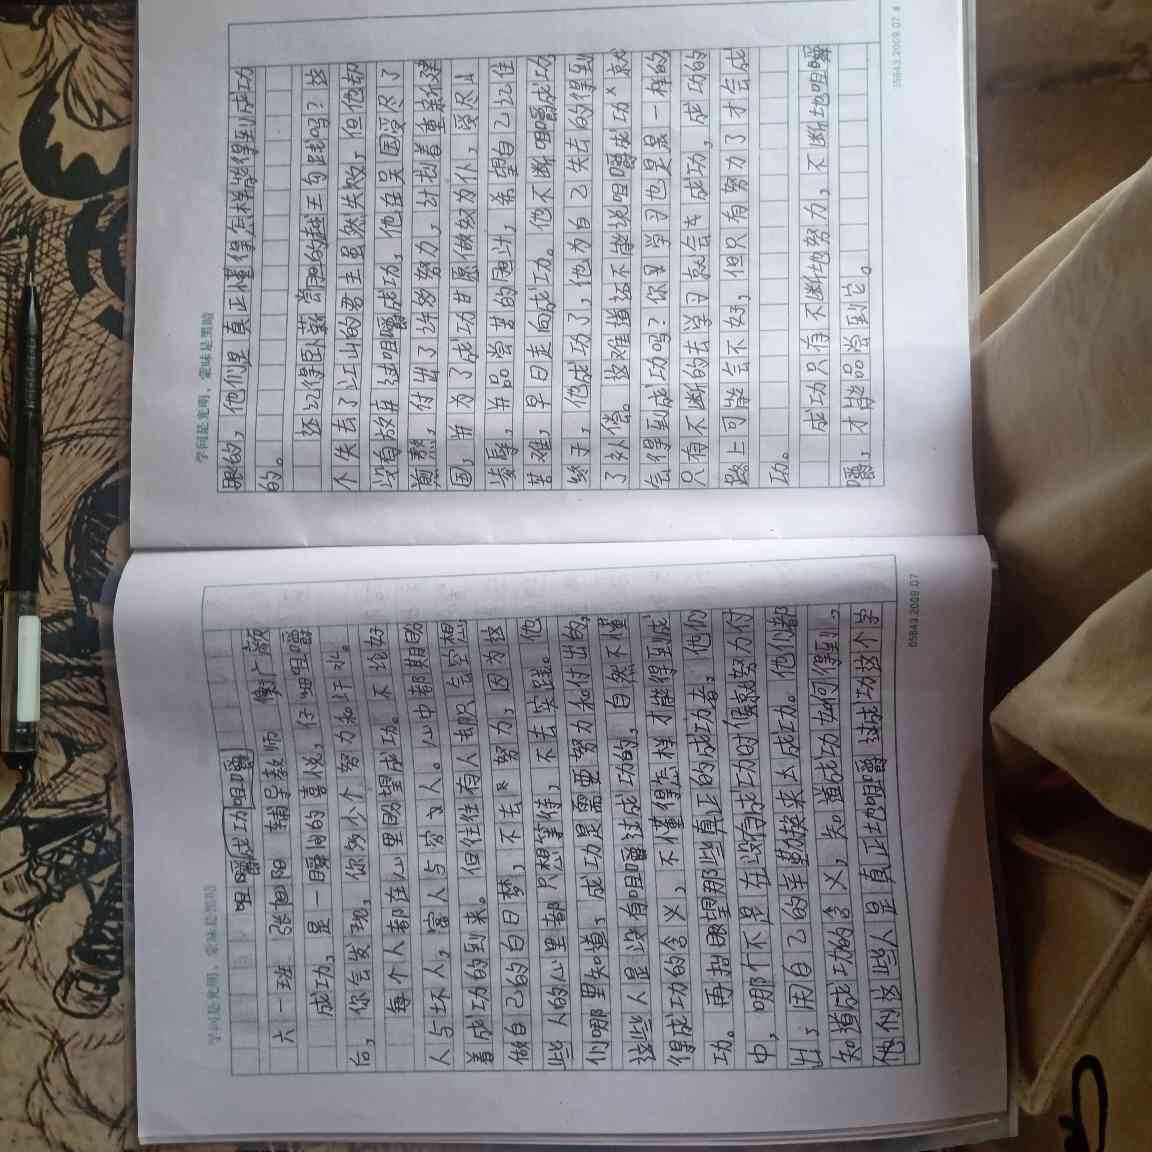 学问是光明，蒙昧是黑暗
咀嚼成功咀嚼
六一班 张旭阳 辅导教师 康广颖
成功，是一瞬间的喜悦，仔细咀嚼
后，你会发现，你多少个努力和汗水。
每个人都在心里盼望成功。不论好
人与坏人，富人与穷人。心中都期盼
着成功的到来。但往往有人却只会空想
做自己的白日梦，不去努力，因为这
些人的心里都只想等待，不去实践。他
们哪里知道，成功是需要努力和付出的。
这些人是没有咀嚼过成功的，自然不懂
得成功的含义，不懂得怎样才能得到成
功。再抬眼望那些真正的成功者，他们
中，哪个不是在没有成功时候努力付
出，用自己的辛勤换来大成功。他们都
知道成功的含义，知道成功如何得到。
他们这些人是真正地咀嚼过成功这个字
05843.2009.07
学问是光明，蒙昧是黑暗
眼的，他们是真正懂得怎样能得到成功
的。
还记得卧薪尝胆的越王勾践吗？这
个失去了江山的霸主虽然失败，但他却
没有放弃过咀嚼成功，他在吴国受尽了
煎熬，付出了许多努力，计划着重新建
国，并为了成功甘愿做奴为仆，受尽
凌辱，并品尝苦的胆汁，希望自己记住
苦难，早日走向成功。他不断咀嚼成功
终于，他成功了，他为自己失去的得到
了补偿。这难道还不能说咀嚼成功就
会得到成功吗？你习学习也是一样的
只有不断的去学习就会成功，成功的
路上可能会不好，但只有努力了才会成
功。
成功只有不断地努力，不断地咀嚼
嚼，才能品尝到它。
05843.2009.07